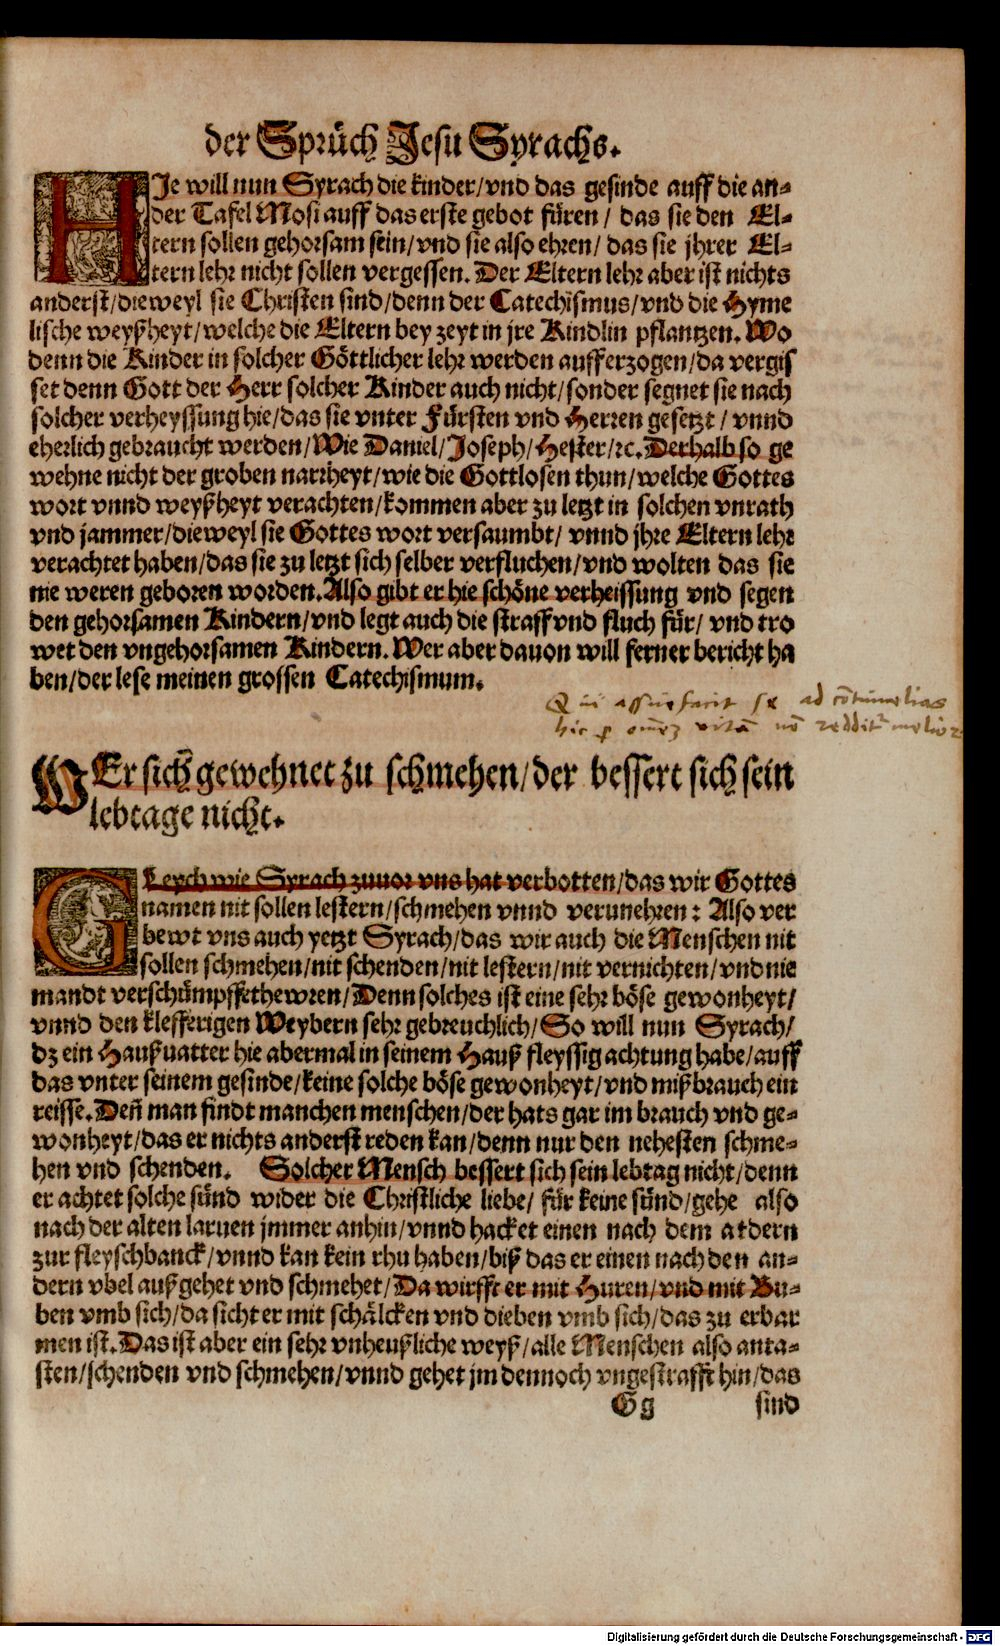 der Sprüch Jesu Syrachs.
HJe will nun Syrach die kinder/vnd das gesinde auff die an-
der Tafel Mosi auff das erste gebot füren/ das sie den El-
tern sollen gehorsam sein/vnd sie also ehren/ das sie jhrer El-
tern lehr nicht sollen vergessen. Der Eltern lehr aber ist nichts
anderst/dieweyl sie Christen sind/denn der Catechismus/vnd die Hyme
lische weyßheyt/welche die Eltern bey zeyt in jre Kindlin pflantzen. Wo
denn die Kinder in solcher Göttlicher lehr werden aufferzogen/da vergis
set denn Gott der Herr solcher Kinder auch nicht/sonder segnet sie nach
solcher verheyssung hie/das sie vnter Fürsten vnd Herren gesetzt/ vnnd
eherlich gebraucht werden/Wie Daniel/Joseph/Hester/rc. Derhalb so ge
wehne nicht der groben narrheyt/wie die Gottlosen thun/welche Gottes
wort vnnd weyßheyt verachten/kommen aber zu letzt in solchen vnrath
vnd jammer/dieweyl sie Gottes wort versaumbt/ vnnd jhre Eltern lehr
verachtet haben/das sie zu letzt sich selber verfluchen/vnd wolten das sie
nie weren geboren worden. Also gibt er hie schöne verheissung vnd segen
den gehorsamen Kindern/vnd legt auch die straff vnd fluch für/ vnd tro
wet den vngehorsamen Kindern. Wer aber dauon will ferner bericht ha
ben/der lese meinen grossen Catechismum.
Qui assuefacit se ad cōtumelias
hic p omēz vitā nō redditr melior
WEr sich gewehnet zu schmehen/der bessert sich sein
lebtage nicht.
GLeych wie Syrach zuuor vns hat verbotten/das wir Gottes
namen nit sollen lestern/schmehen vnnd verunehren: Also ver
bewt vns auch yetzt Syrach/das wir auch die Menschen nit
sollen schmehen/nit schenden/nit lestern/nit vernichten/vnd nie
mandt verschümpffethewren/Denn solches ist eine sehr böse gewonheyt/
vnnd den klefferigen Weybern sehr gebreuchlich/So will nun Syrach/
dz ein Haußuatter hie abermal in seinem Hauß fleyssig achtung habe/auff
das vnter seinem gesinde/keine solche böse gewonheyt/vnd mißbrauch ein
reisse. Deñ man findt manchen menschen/der hats gar im brauch vnd ge-
wonheyt/das er nichts anderst reden kan/denn nur den nehesten schme-
hen vnd schenden. Solcher Mensch bessert sich sein lebtag nicht/denn
er achtet solche sünd wider die Christliche liebe/ für keine sünd/gehe also
nach der alten laruen jmmer anhin/vnnd hacket einen nach dem andern
zur fleyschbanck/vnnd kan kein rhu haben/biß das er einen nach den an-
dern vbel außgehet vnd schmehet/Da wirfft er mit Huren/vnd mit Bu-
ben vmb sich/da sicht er mit schälcken vnd dieben vmb sich/das zu erbar
men ist. Das ist aber ein sehr vnheußliche weyß/alle Menschen also anta-
sten/schenden vnd schmehen/vnnd gehet jm dennoch vngestrafft hin/das
Gg sind
Digitalisierung gefördert durch die Deutsche Forschungsgemeinschaft - DFG